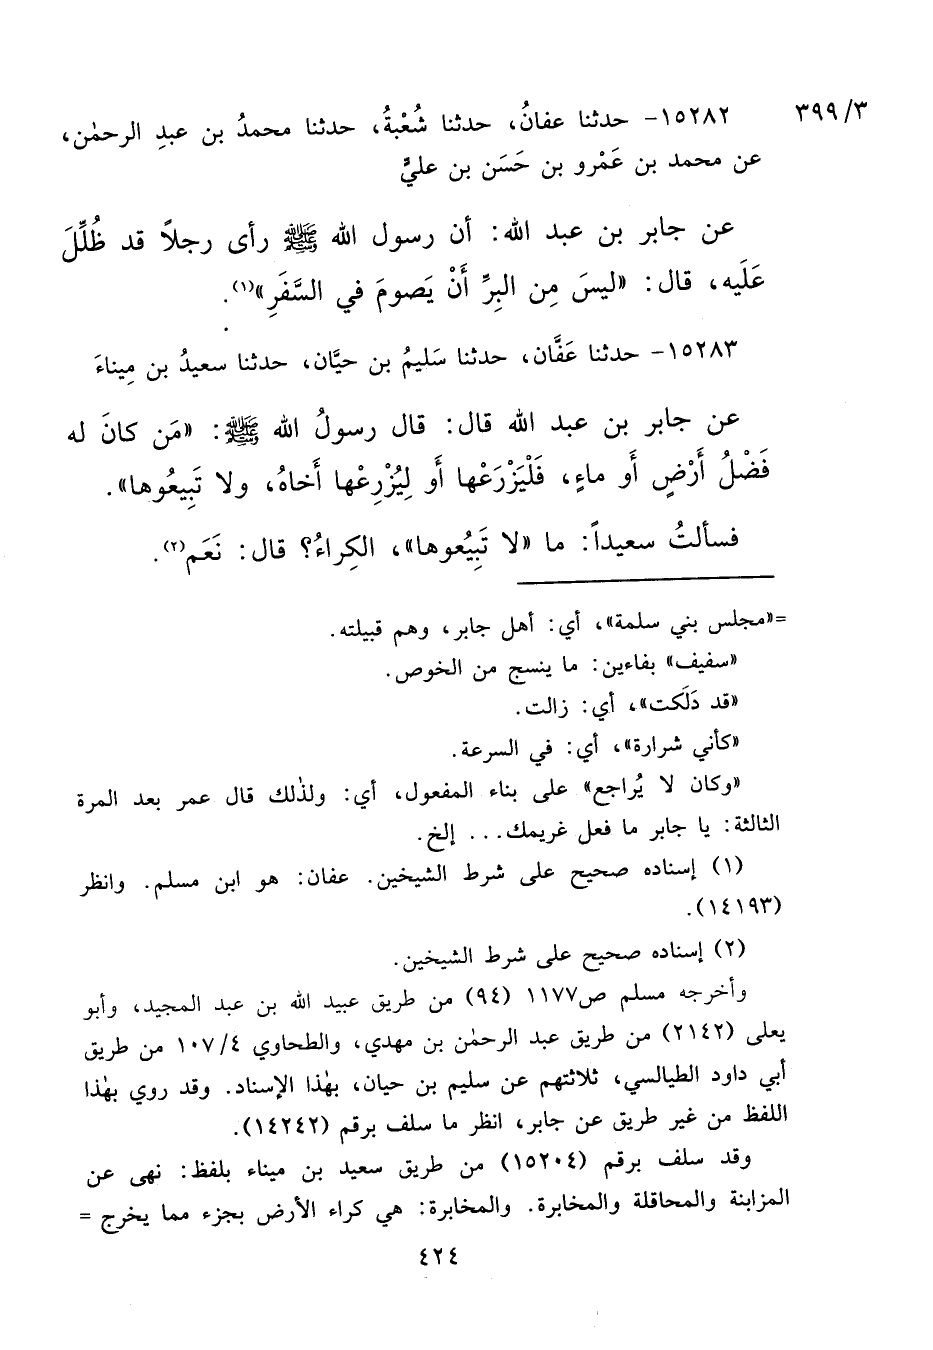 ٣٩٩/٣ ١٥٢٨٢- حدثنا عفانُ، حدثنا شُعْبةُ، حدثنا محمدُ بن عبدِ الرحمٰن،
عن محمد بن عَمْرو بن حَسَن بن عليٍّ
عن جابر بن عبد الله: أن رسول الله ﷺ رأى رجلاً قد ظُلِّلَ
عَلَيه، قال: «ليسَ مِن البِرِّ أَنْ يَصومَ في السَّفَرِ»(١).
١٥٢٨٣- حدثنا عَفَّان، حدثنا سَليمُ بن حيَّان، حدثنا سعيدُ بن مِيناءَ
عن جابر بن عبد الله قال: قال رسولُ الله ﷺ: «مَن كانَ له
فَضْلُ أَرْضٍ أَو ماءٍ، فَلْيَزْرَعْها أَو لِيُزْرِعْها أَخاهُ، ولا تَبِيعُوها».
فسألتُ سعيداً: ما «لا تَبِيْعوها»، الكِراءُ؟ قال: نَعَم(٢).
=«مجلس بني سلمة»، أي: أهل جابر، وهم قبيلته.
«سفيف» بفاءين: ما ينسج من الخوص.
«قد دَلَكت»، أي: زالت.
«كأني شرارة»، أي: في السرعة.
«وكان لا يُراجع» على بناء المفعول، أي: ولذٰلك قال عمر بعد المرة
الثالثة: يا جابر ما فعل غريمك... إلخ.
(١) إسناده صحيح على شرط الشيخين. عفان: هو ابن مسلم. وانظر
(١٤١٩٣).
(٢) إسناده صحيح على شرط الشيخين.
وأخرجه مسلم ص١١٧٧ (٩٤) من طريق عبيد الله بن عبد المجيد، وأبو
يعلى (٢١٤٢) من طريق عبد الرحمٰن بن مهدي، والطحاوي ١٠٧/٤ من طريق
أبي داود الطيالسي، ثلاثتهم عن سليم بن حيان، بهٰذا الإسناد. وقد روي بهٰذا
اللفظ من غير طريق عن جابر، انظر ما سلف برقم (١٤٢٤٢).
وقد سلف برقم (١٥٢٠٤) من طريق سعيد بن ميناء بلفظ: نهى عن
المزابنة والمحاقلة والمخابرة. والمخابرة: هي كراء الأرض بجزء مما يخرج =
٤٢٤